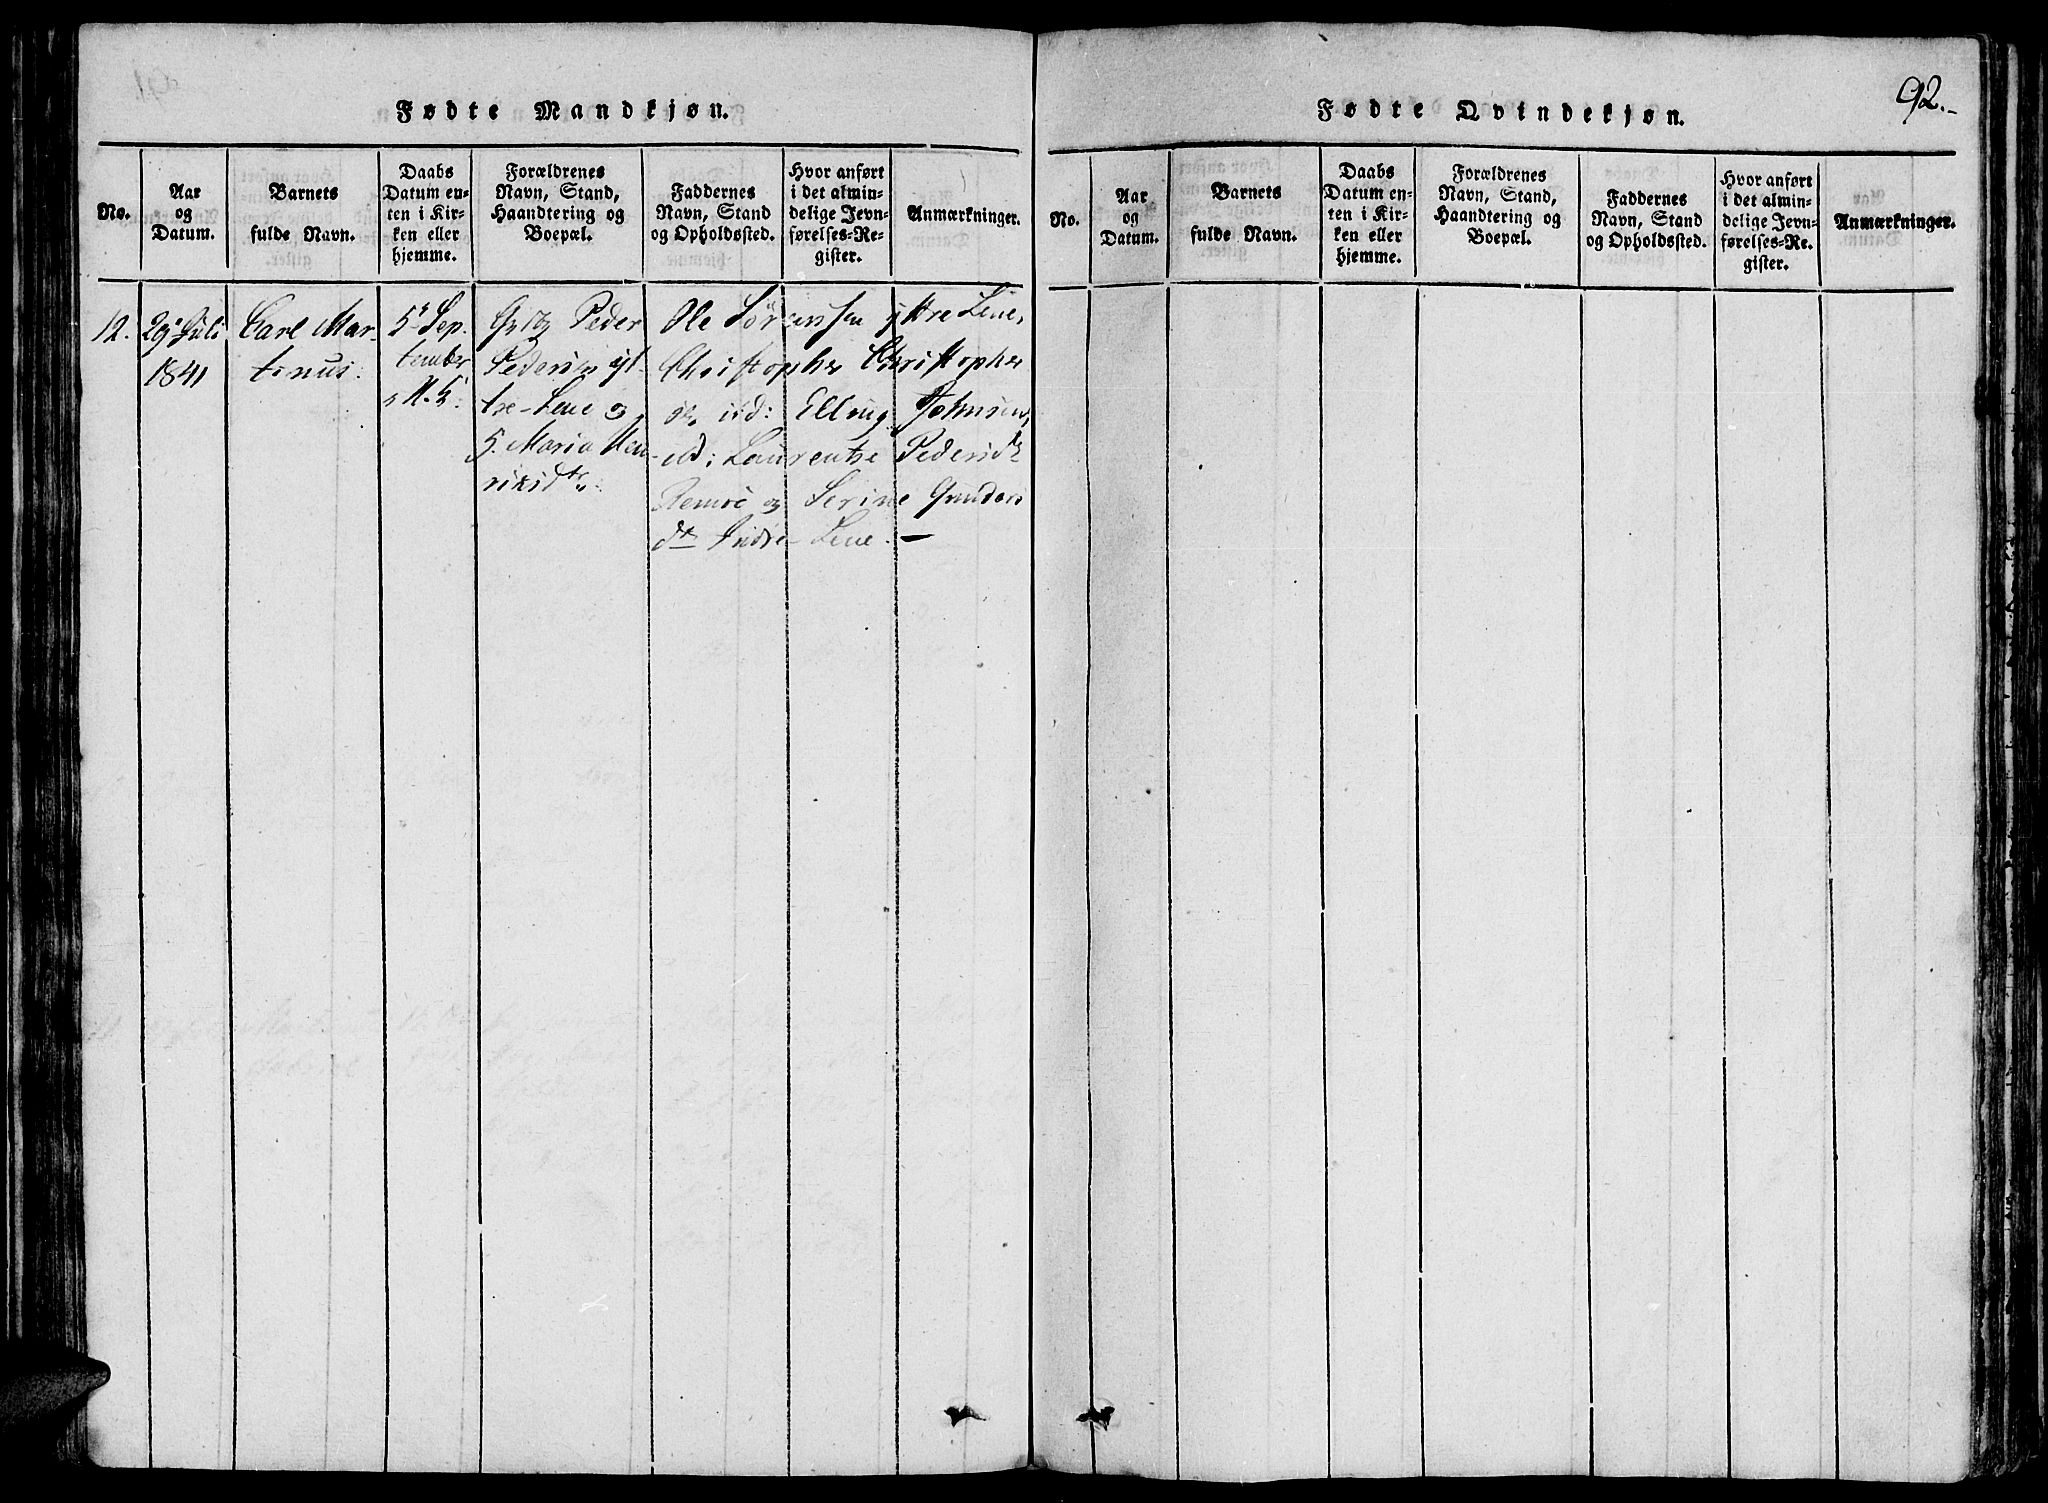 Fødte Mandkjøn.
No.
Aar
og
Datum.
Barnets
fulde Navn.
Daabs
Datum en-
ten i Kir-
ken eller
hjemme.
Forældrenes
Navn, Stand,
Haandtering og
Boepæl.
Faddernes
Navn, Stand
og Opholdssted.
Hvor anført
i det almin-
delige Jevn-
førelses-Re-
gister.
Anmærkninger.
12.
29 Juli
1841
Carl Mar-
tinus.
5 Sep-
tember
Peder
Pedersen yt-
tre-Lene og
Maria Hen
riksdt.
Ole Sørenssen yttre Lene,
Christopher Christopher
Elling Johnsen,
Laurentse Pedersdt
Remie og Serine Gunders
dt Indre Lene. —
92.
Fødte Qvindekjøn.
No.
Aar
og
Datum.
Barnets
fulde Navn.
Daabs
Datum en-
ten i Kir-
ken eller
hjemme.
Forældrenes
Navn, Stand,
Haandtering og
Boepæl.
Faddernes
Navn, Stand
og Opholdssted.
Hvor anført
i det almin-
delige Jevn-
førelses-Re-
gister.
Anmærkninger.